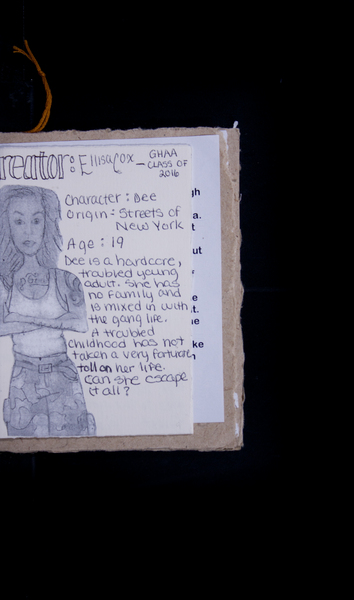 reator: Ellisa Cox – GHAA
CLASS OF
2016
Character: Dee
Origin: Streets of
New York
Age: 19
Dee is a hardcore,
troubled young
adult. She has
no family and
is mixed in with
the gang life.
A troubled
childhood has not
taken a very
toll on her life.
Can she escape
it all?
gh
a.
t
out
e
t.
ne
ke